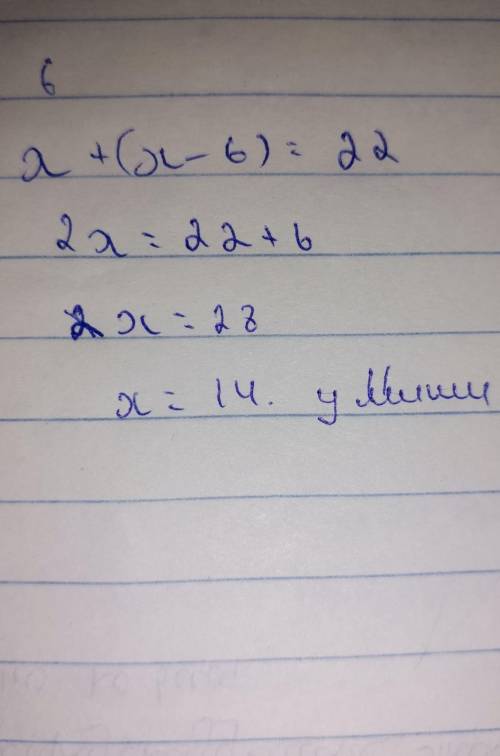 6
x + (x - 6) = 22
2x = 22 + 6
2x = 28
x = 14. у Миши